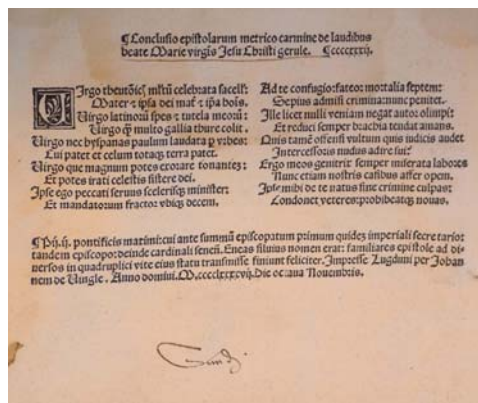 ¶ Conclusio epistolarum metrico carmine de laudibus
beate Marie virgīs Jesu Christi gerule. ¶ ccccxxxij.
Virgo theutōicꝭ multū celebrata sacell:
Mater ⁊ ipsa dei mat̄ ⁊ ip̄a hoīs.
Virgo latinorū spes ⁊ tutela meorū:
Virgo q̄ multo gallia thure colit.
Virgo nec hyspanas paulum laudata p vrbes:
Cui patet et celum totaq terra patet.
Virgo que magnum potes exorare tonantez:
Et potes irati celestis sistere dei.
Ipse ego peccati seruus scelerisq minister:
Et mandatorum fractor vbiq decem.
Ad te confugio: fateor: mortalia septem:
Sepius admisi crimina: nunc penitet.
Ille licet nulli veniam negat autor olimpi:
Et reduci semper brachia tendat amans.
Quis tamē offensi vultum quis iudicis audet
Intercessoris nudus adire sui?
Ergo meos genitrix semper miserata labores
Nunc etiam nostris casibus affer opem.
Ipse mihi de te natus sine crimine culpas:
Condonet veteres: prohibeatq nouas.
¶ Pij. ij. pontificis maximi: cui ante summū episcopatum primum quidez imperiali secretario:
tandem episcopo: deinde cardinali senēn. Eneas siluius nomen erat: familiares epistole ad di-
uersos in quadruplici vite eius statu transmisse finiunt feliciter. Impresse Lugduni per Johan
nem de Vingle. Anno domini. M.cccclxxxxvij. Die octaua Nouembris.